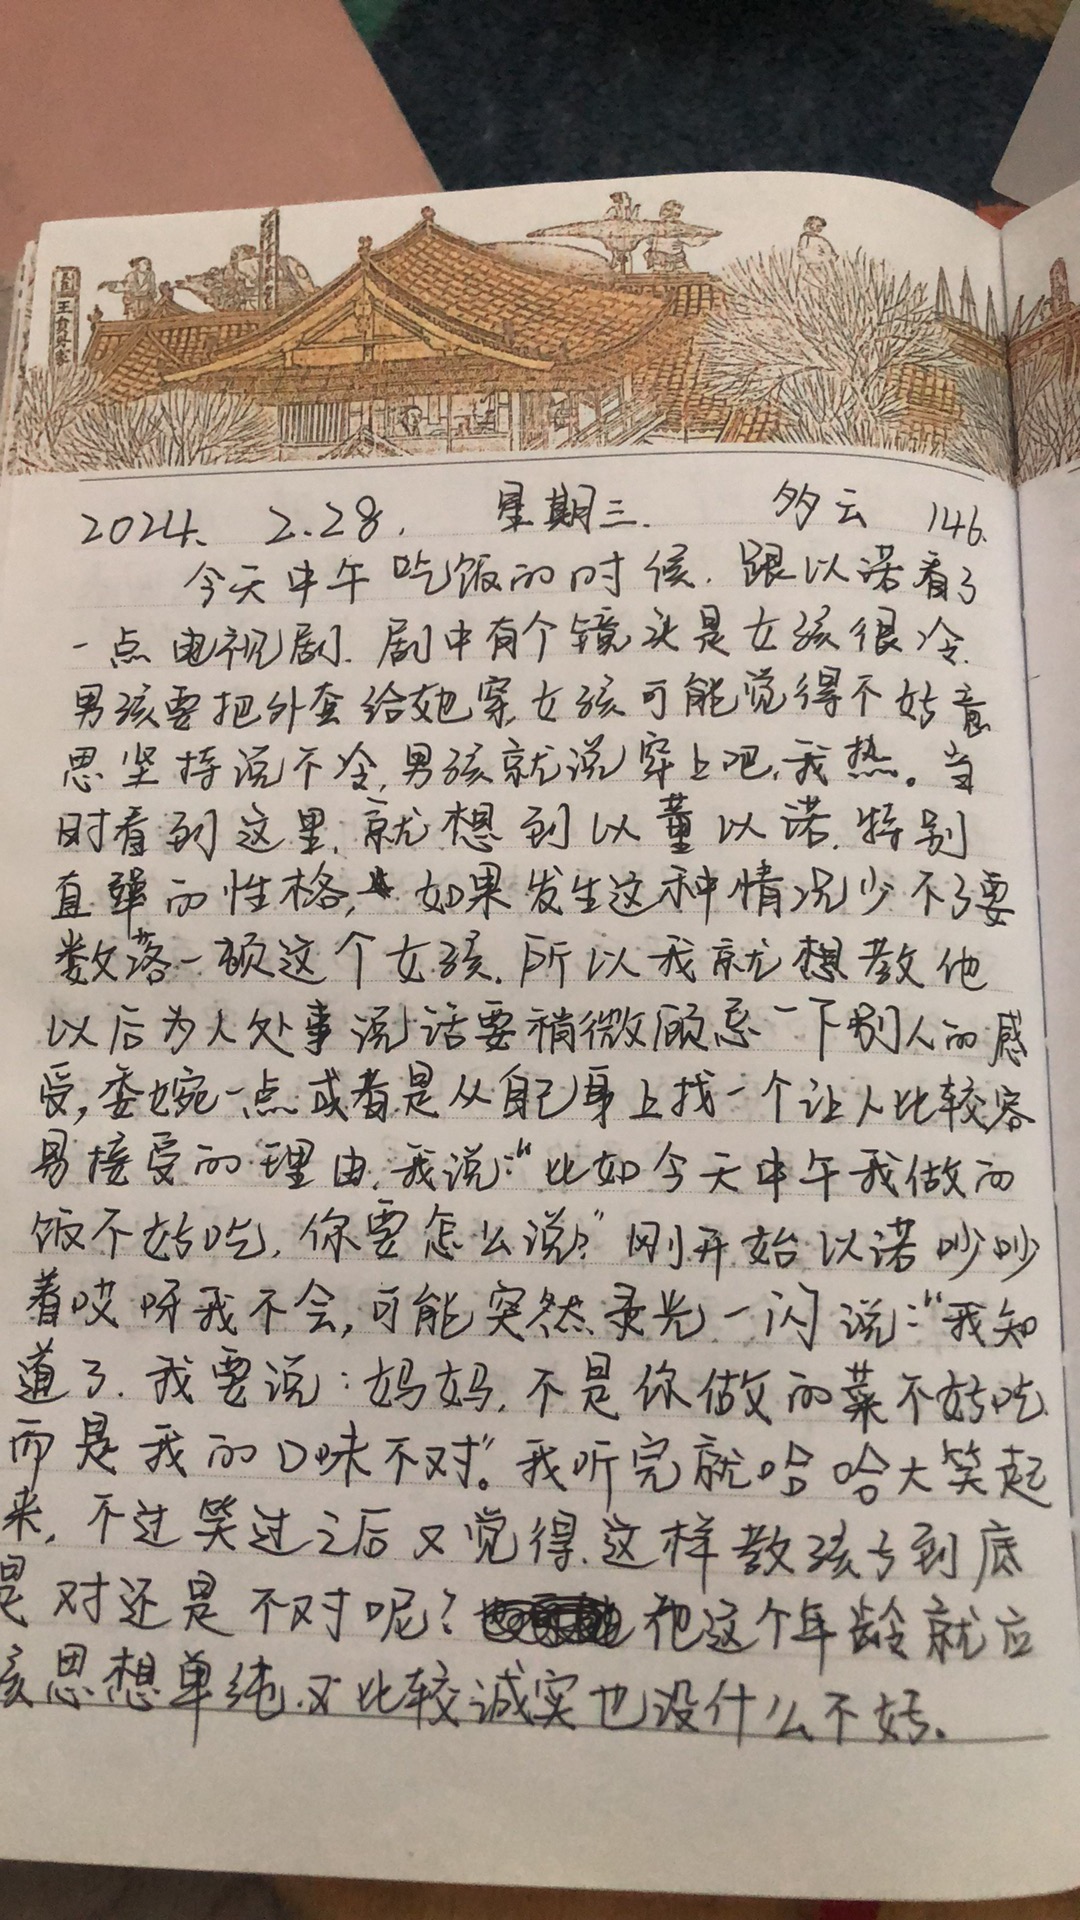 2024. 2.28. 星期三. 多云 146.
今天中午吃饭的时候. 跟以诺看了
一点电视剧. 剧中有个镜头是女孩很冷.
男孩要把外套给她穿, 女孩可能觉得不好意
思坚持说不冷, 男孩就说穿上吧, 我热。当
时看到这里, 就想到以董以诺, 特别
直率的性格, 如果发生这种情况少不了要
数落一顿这个女孩. 所以我就想教他
以后为人处事说话要稍微顾忌一下别人的感
受, 委婉一点或者是从自己身上找一个让人比较容
易接受的理由, 我说:“比如今天中午我做的
饭不好吃, 你要怎么说?” 刚开始以诺吵吵
着哎呀我不会, 可能突然灵光一闪说:“我知
道了. 我要说: 妈妈, 不是你做的菜不好吃
而是我的口味不对”。我听完就哈哈大笑起
来, 不过笑过之后又觉得, 这样教孩子到底
是对还是不对呢? 他这个年龄就应
该思想单纯. 又比较诚实也没什么不好.